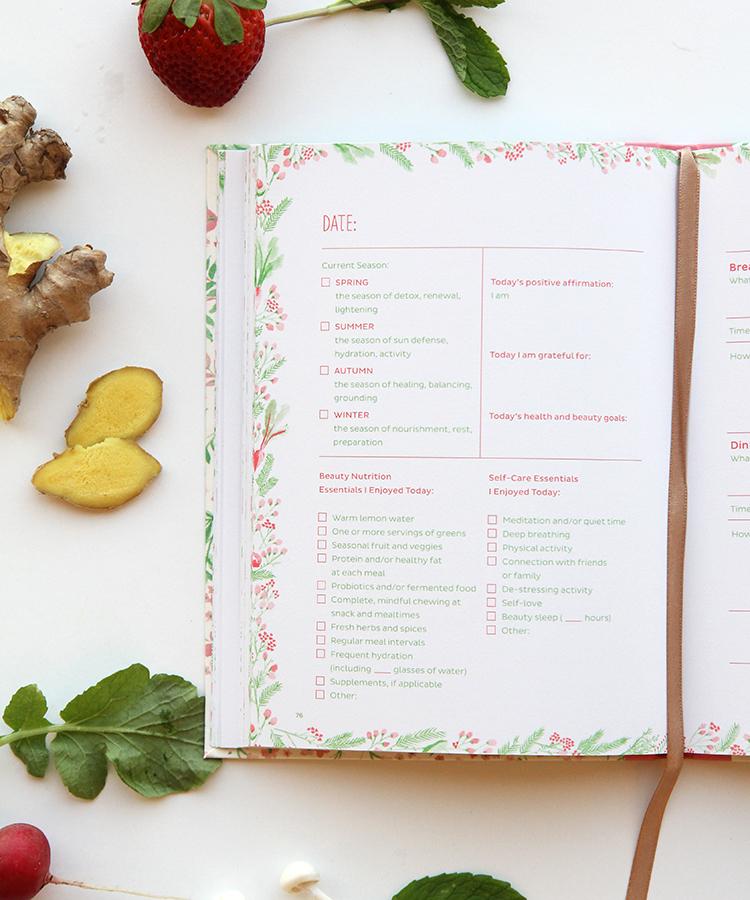 DATE:
Current Season:
SPRING
the season of detox, renewal,
lightening
SUMMER
the season of sun defense,
hydration, activity
AUTUMN
the season of healing, balancing,
grounding
WINTER
the season of nourishment, rest,
preparation
Today's positive affirmation:
I am
Today I am grateful for:
Today's health and beauty goals:
Beauty Nutrition
Essentials I Enjoyed Today:
Warm lemon water
One or more servings of greens
Seasonal fruit and veggies
Protein and/or healthy fat
at each meal
Probiotics and/or fermented food
Complete, mindful chewing at
snack and mealtimes
Fresh herbs and spices
Regular meal intervals
Frequent hydration
(including ___ glasses of water)
Supplements, if applicable
Other:
Self-Care Essentials
I Enjoyed Today:
Meditation and/or quiet time
Deep breathing
Physical activity
Connection with friends
or family
De-stressing activity
Self-love
Beauty sleep ( ___ hours)
Other:
76
Brea
What
Time
How
Din
Wha
Time
How